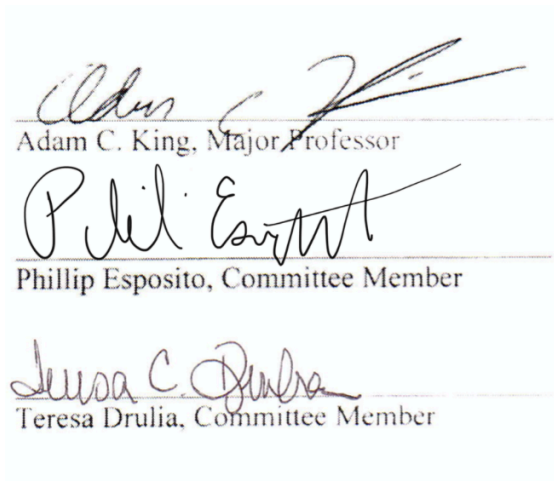 Adam C King
Adam C. King, Major Professor
Phillip Esposito, Committee Member
Teresa C. Drulia
Teresa Drulia, Committee Member